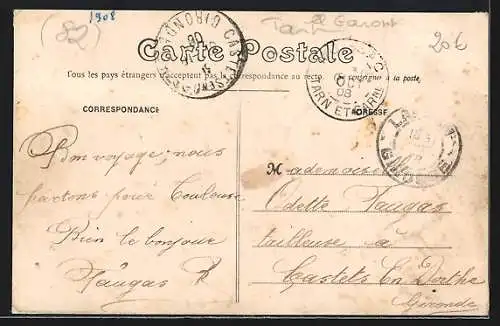 (82)
1908
Tarn et Garont
206
Carte Postale
Tous les pays étrangers n'acceptent pas la correspondance au recto. (Se renseigner à la poste)
CORRESPONDANCE
ADRESSE
TARN ET GARNE
GIRONDE
Bon voyage, nous
partons pour Toulouse
Bien le bonjour
Faugas
Mademoiselle
Odette Faugas
tailleuse à
Castets En Dorthe
Gironde